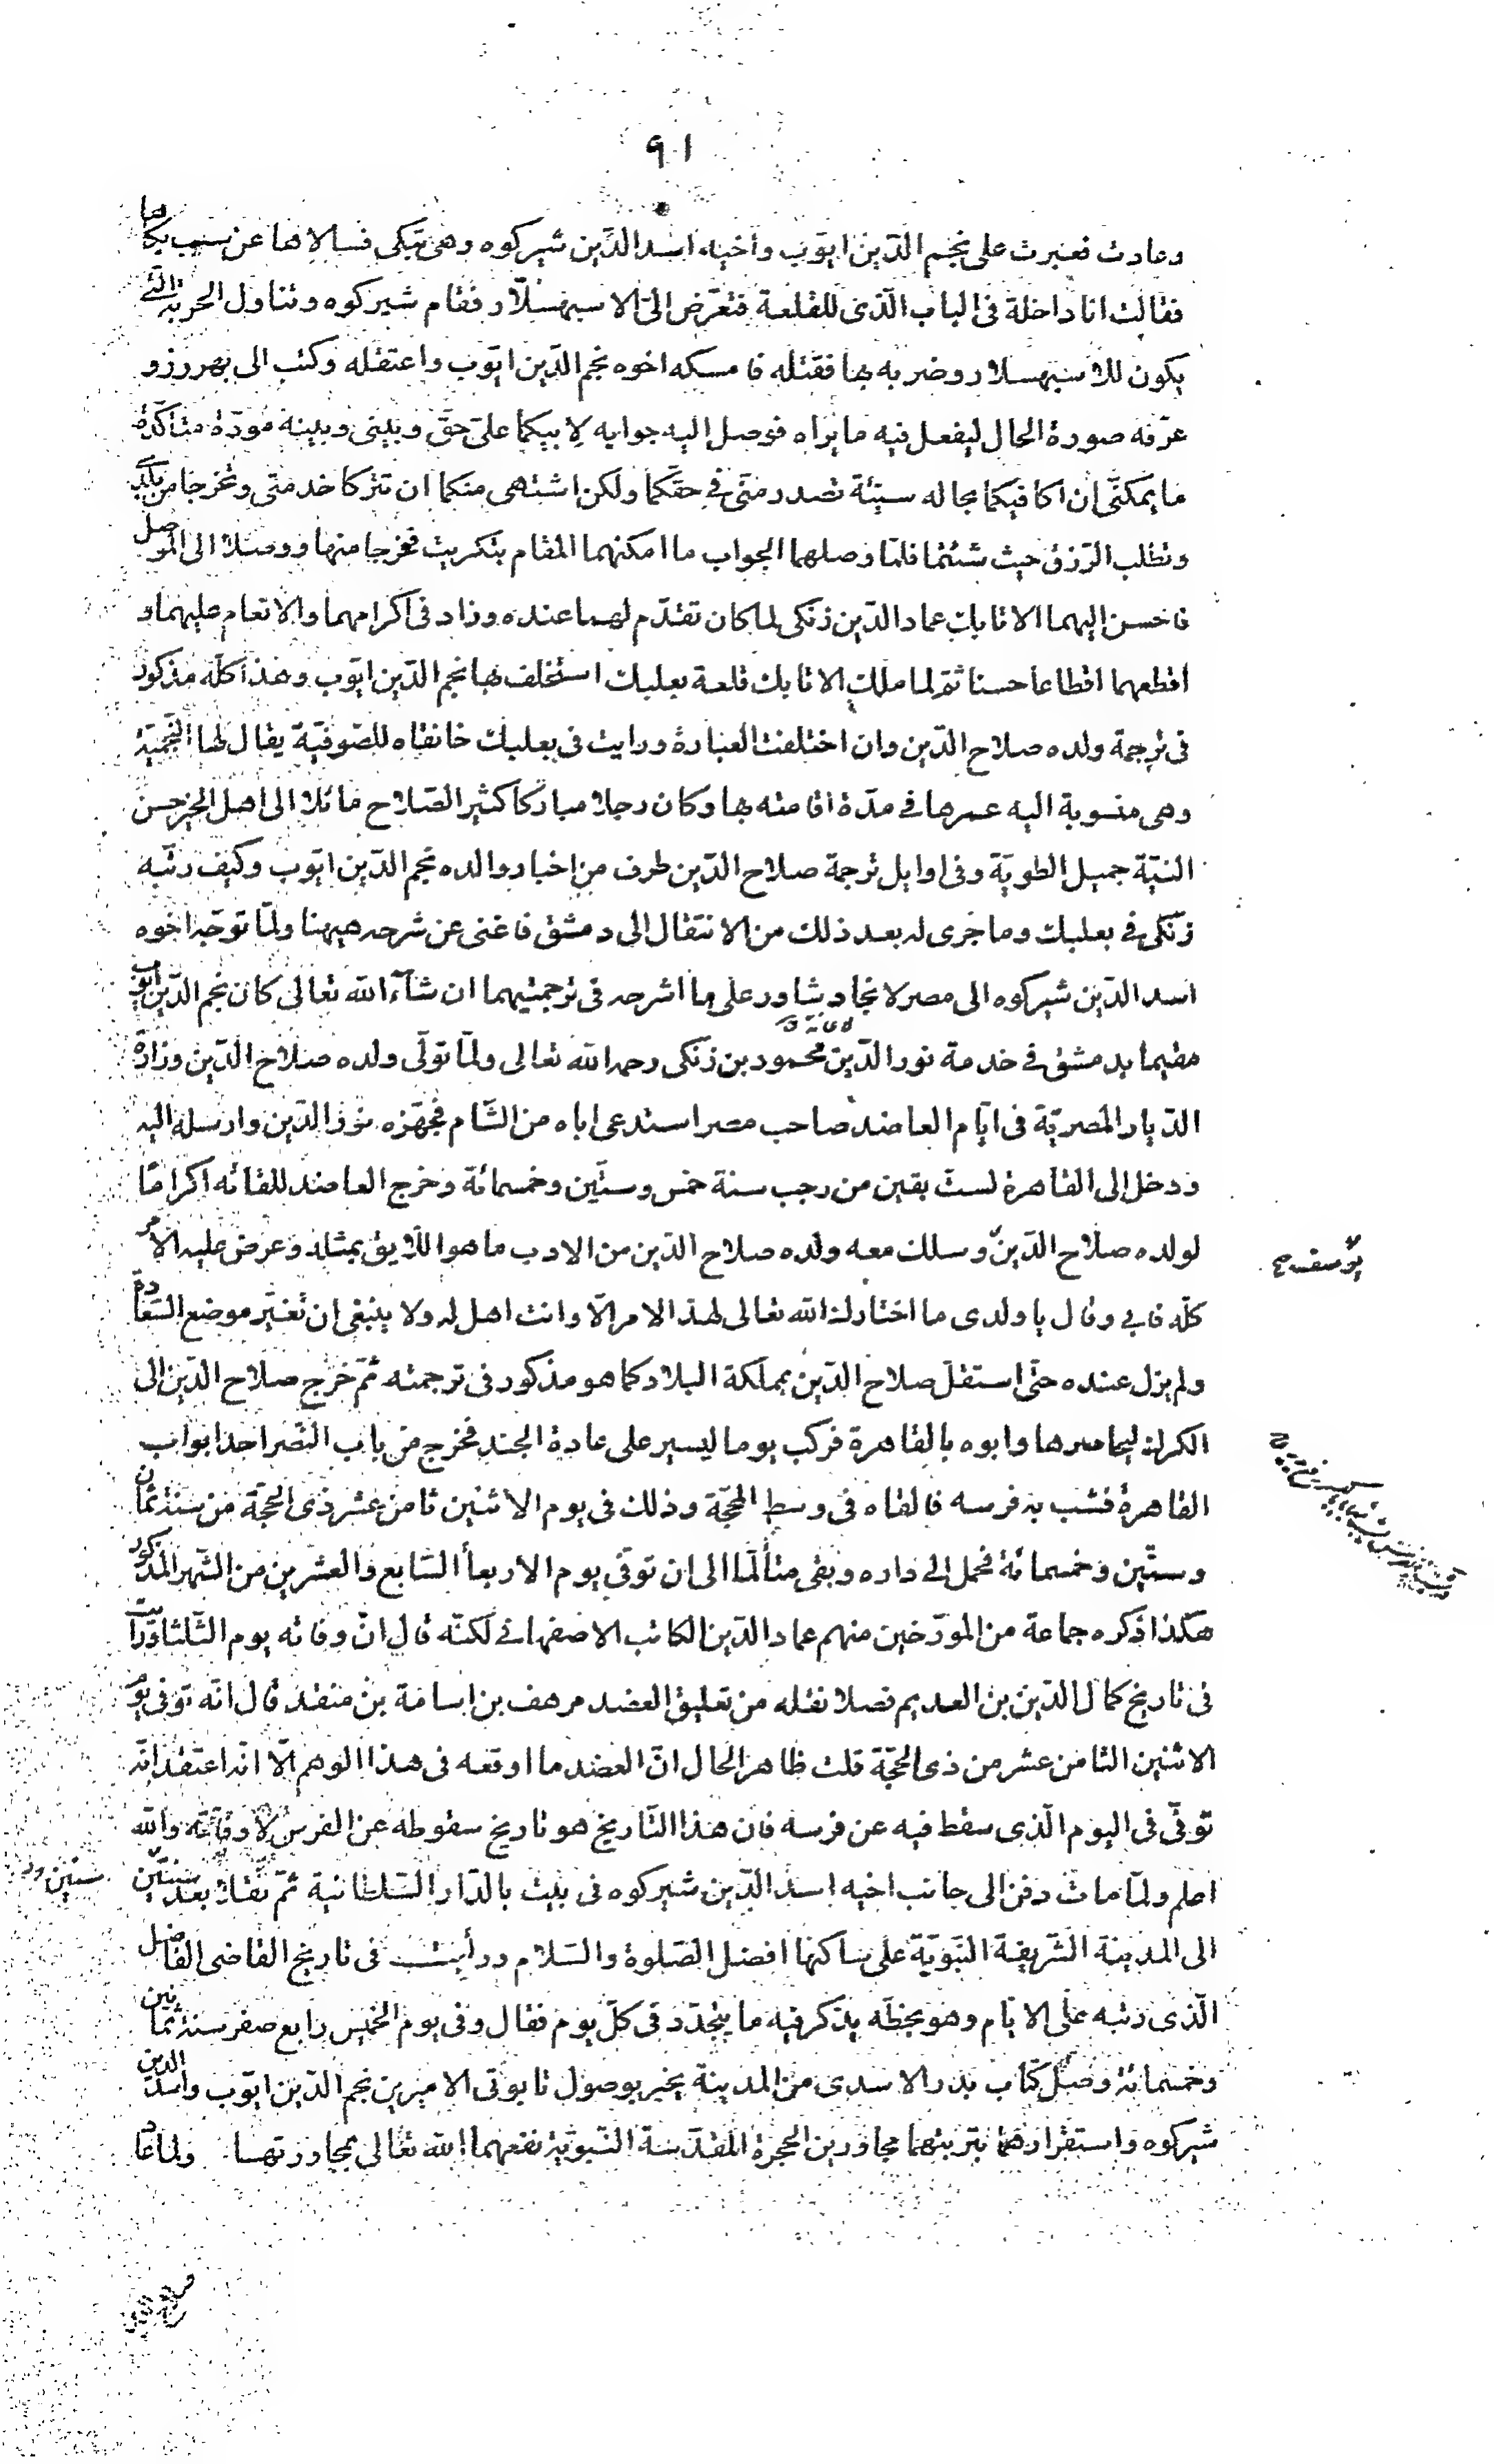 ٩١
وعادت فعبرت على نجم الدّين ايوّب وأخيه اسد الدّين شيركوه وهى تبكى فسالاها عن سبب بكاها
فقالت انا داخلة فى الباب الّذى للقلعة فتعرّض الىّ الاسبهسلّار فقام شيركوه وتناول الحربة الّتى
يكون للاسبهسلار وضربه بها فقتله فامسكه اخوه نجم الدّين ايّوب واعتقله وكتب الى بهروز و
عرّفه صورة الحال ليفعل فيه ما يراه فوصل اليه جوابه لابيكما علىّ حقّ وبينى وبينه مودّة متأكّدة
ما يمكننى ان اكافيكما بحاله سيّئة تصدر منّى فى حقّكما ولكن اشتهى منكما ان تتركا خدمتى وتخرجا من بلدى
وتطلب الرّزق حيث شئتما فلمّا وصلهما الجواب ما امكنهما المقام بتكريت فخرجا منها ووصلا الى الموصل
فاحسن اليهما الاتابك عماد الدّين زنكى لما كان تقدّم لهما عنده وزاد فى اكرامهما والانعام عليهما و
اقطعهما اقطاعا حسنا ثمّ لما ملك الاتابك قلعة بعلبك استخلف بها نجم الدّين ايّوب وهذا كلّه مذكور
فى ترجمة ولده صلاح الدّين وان اختلفت العبارة ورايت فى بعلبك خانقاه للصّوفيّة يقال لها النّجميّة
وهى منسوبة اليه عمرها فى مدّة اقامته بها وكان رجلا مباركا كثير الصّلاح مائلا الى اهل الخير حسن
النيّة جميل الطويّة وفى اوايل ترجمة صلاح الدّين طرف من اخبار والده نجم الدّين ايّوب وكيف رتّبه
زنكى فى بعلبك وما جرى له بعد ذلك من الانتقال الى دمشق فاغنى عن شرحه هيهنا ولمّا توجّه اخوه
اسد الدّين شيركوه الى مصر لانجاد شاور على ما اشرحه فى ترجمتيهما ان شآء الله تعالى كان نجم الدّين ايّوب
مقيما بدمشق فى خدمة نور الدّين محمود بن زنكى رحمه الله تعالى ولمّا تولّى ولده صلاح الدّين وزارة
الدّيار المصريّة فى ايّام العاضد صاحب مصر استدعى اباه من الشّام فجهّزه نور الدّين وارسله اليه
ودخل الى القاهرة لستّ بقين من رجب سنة خمس وستّين وخمسمائة وخرج العاضد للقائه اكراما
لولده صلاح الدّين وسلك معه ولده صلاح الدّين من الادب ما هو اللّايق بمثله وعرض عليه الامر
يوسف صح
كلّه فابى وقال يا ولدى ما اختارك الله تعالى لهذا الامر الّا وانت اهل له ولا ينبغى ان تغيّر موضع السّعادة
ولم يزل عنده حتّى استقلّ صلاح الدّين بمملكة البلاد كما هو مذكور فى ترجمته ثمّ خرج صلاح الدّين الى
الكرك ليحاصرها وابوه بالقاهرة فركب يوما ليسير على عادة الجند فخرج من باب النّصر احد ابواب
القاهرة فشب به فرسه فالقاه فى وسط المحجّة وذلك فى يوم الاثنين ثامن عشر ذى الحجّة من سنة ثمان
وستّين وخمسمائة فحمل الى داره وبقى متألّما الى ان توفّى يوم الاربعأ السّابع والعشرين من الشّهر المذكور
هكذا ذكره جماعة من المورّخين منهم عماد الدّين الكاتب الاصفهانى لكنّه قال انّ وفاته يوم الثّلثا ورايت
فى تاريخ كمال الدّين بن العديم فصلا نقله من تعليق العضد مرهف بن اسامة بن منقذ قال انّه توفى يوم
الاثنين الثامن عشر من ذى الحجّة قلت ظاهر الحال انّ العضد ما اوقعه فى هذا الوهم الّا انّه اعتقد انّه
توفّى فى اليوم الّذى سقط فيه عن فرسه فان هذا التّاريخ هو تاريخ سقوطه عن الفرس لا وفاته والله
اعلم ولمّا مات دفن الى جانب اخيه اسد الدّين شيركوه فى بيت بالدّار السّلطانية ثمّ نقلا بعد سنتين
سنين
الى المدينة الشّريفة النّبويّة على ساكنها افضل الصّلوة والسّلام ورأيت فى تاريخ القاضى الفاضل
الّذى رتبه على الايّام وهو بخطّه يذكر فيه ما يتجدّد فى كلّ يوم فقال وفى يوم الخميس رابع صفر سنة ثمانين
وخمسمائة وصل كتاب بدر الاسدى من المدينة يخبر بوصول تابوتى الاميرين نجم الدّين ايّوب واسد الدين
شيركوه واستقرارهما بتربتهما مجاورين الحجرة المقدّسة النّبويّة نفعهما الله تعالى بمجاورتهما ولما عاد